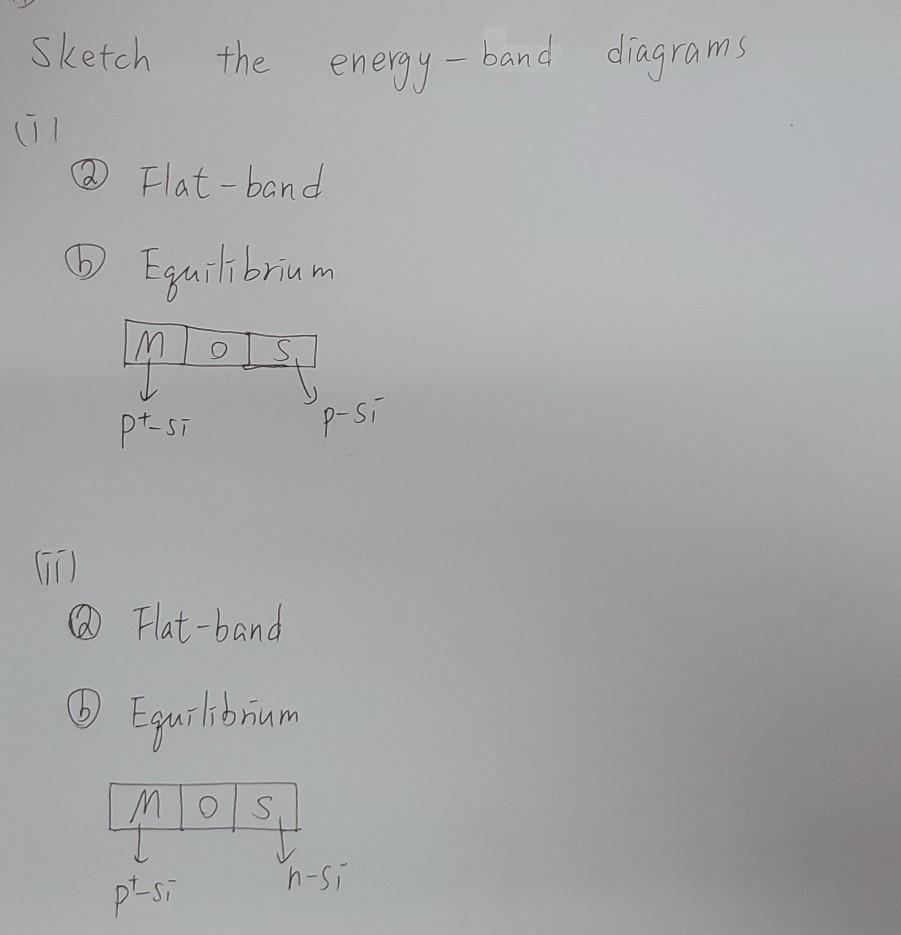 Sketch the energy-band diagrams
(i)
ⓐ Flat-band
ⓑ Equilibrium
M O S
p⁺-si p-si
(ii)
ⓐ Flat-band
ⓑ Equilibrium
M O S
p⁺-si n-si